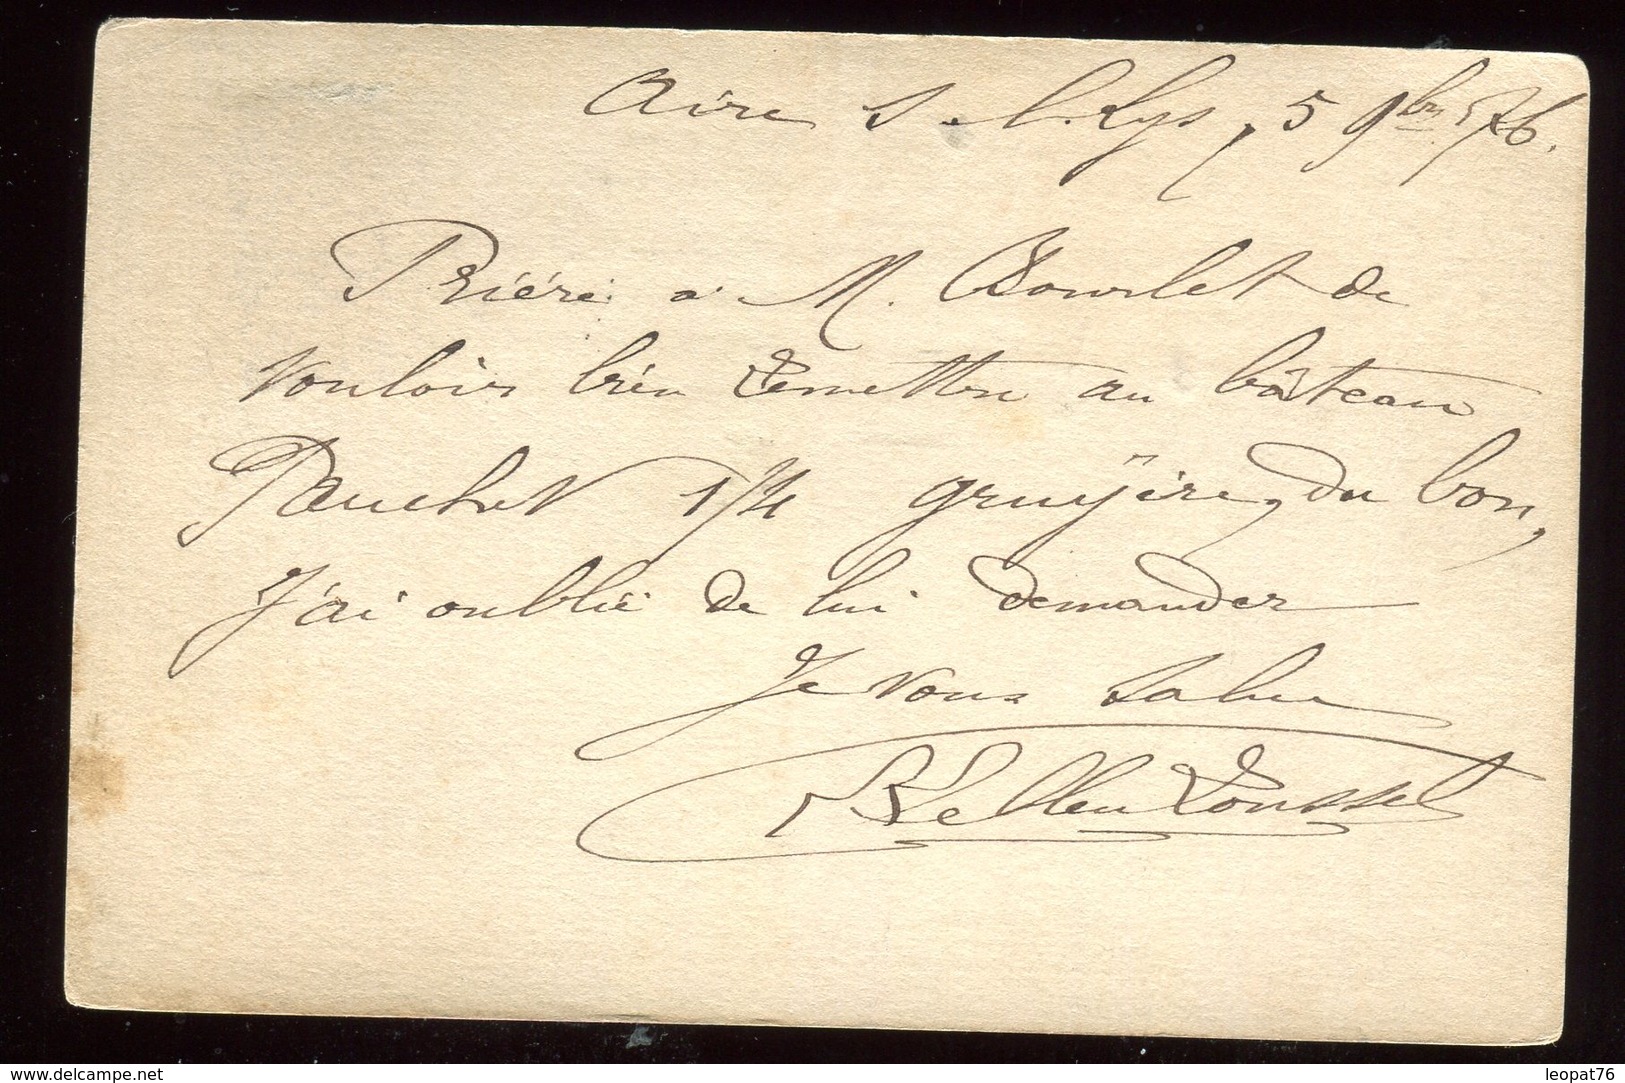 Aire s. l. Lys, 5 9bre 76.
Prière à M. Bourlet de
vouloir bien remettre au bâteau
Pauchet 1/4 gruyère, du bon,
J'ai oublié de lui demander
Je vous salue
www.delcampe.net
leopat76